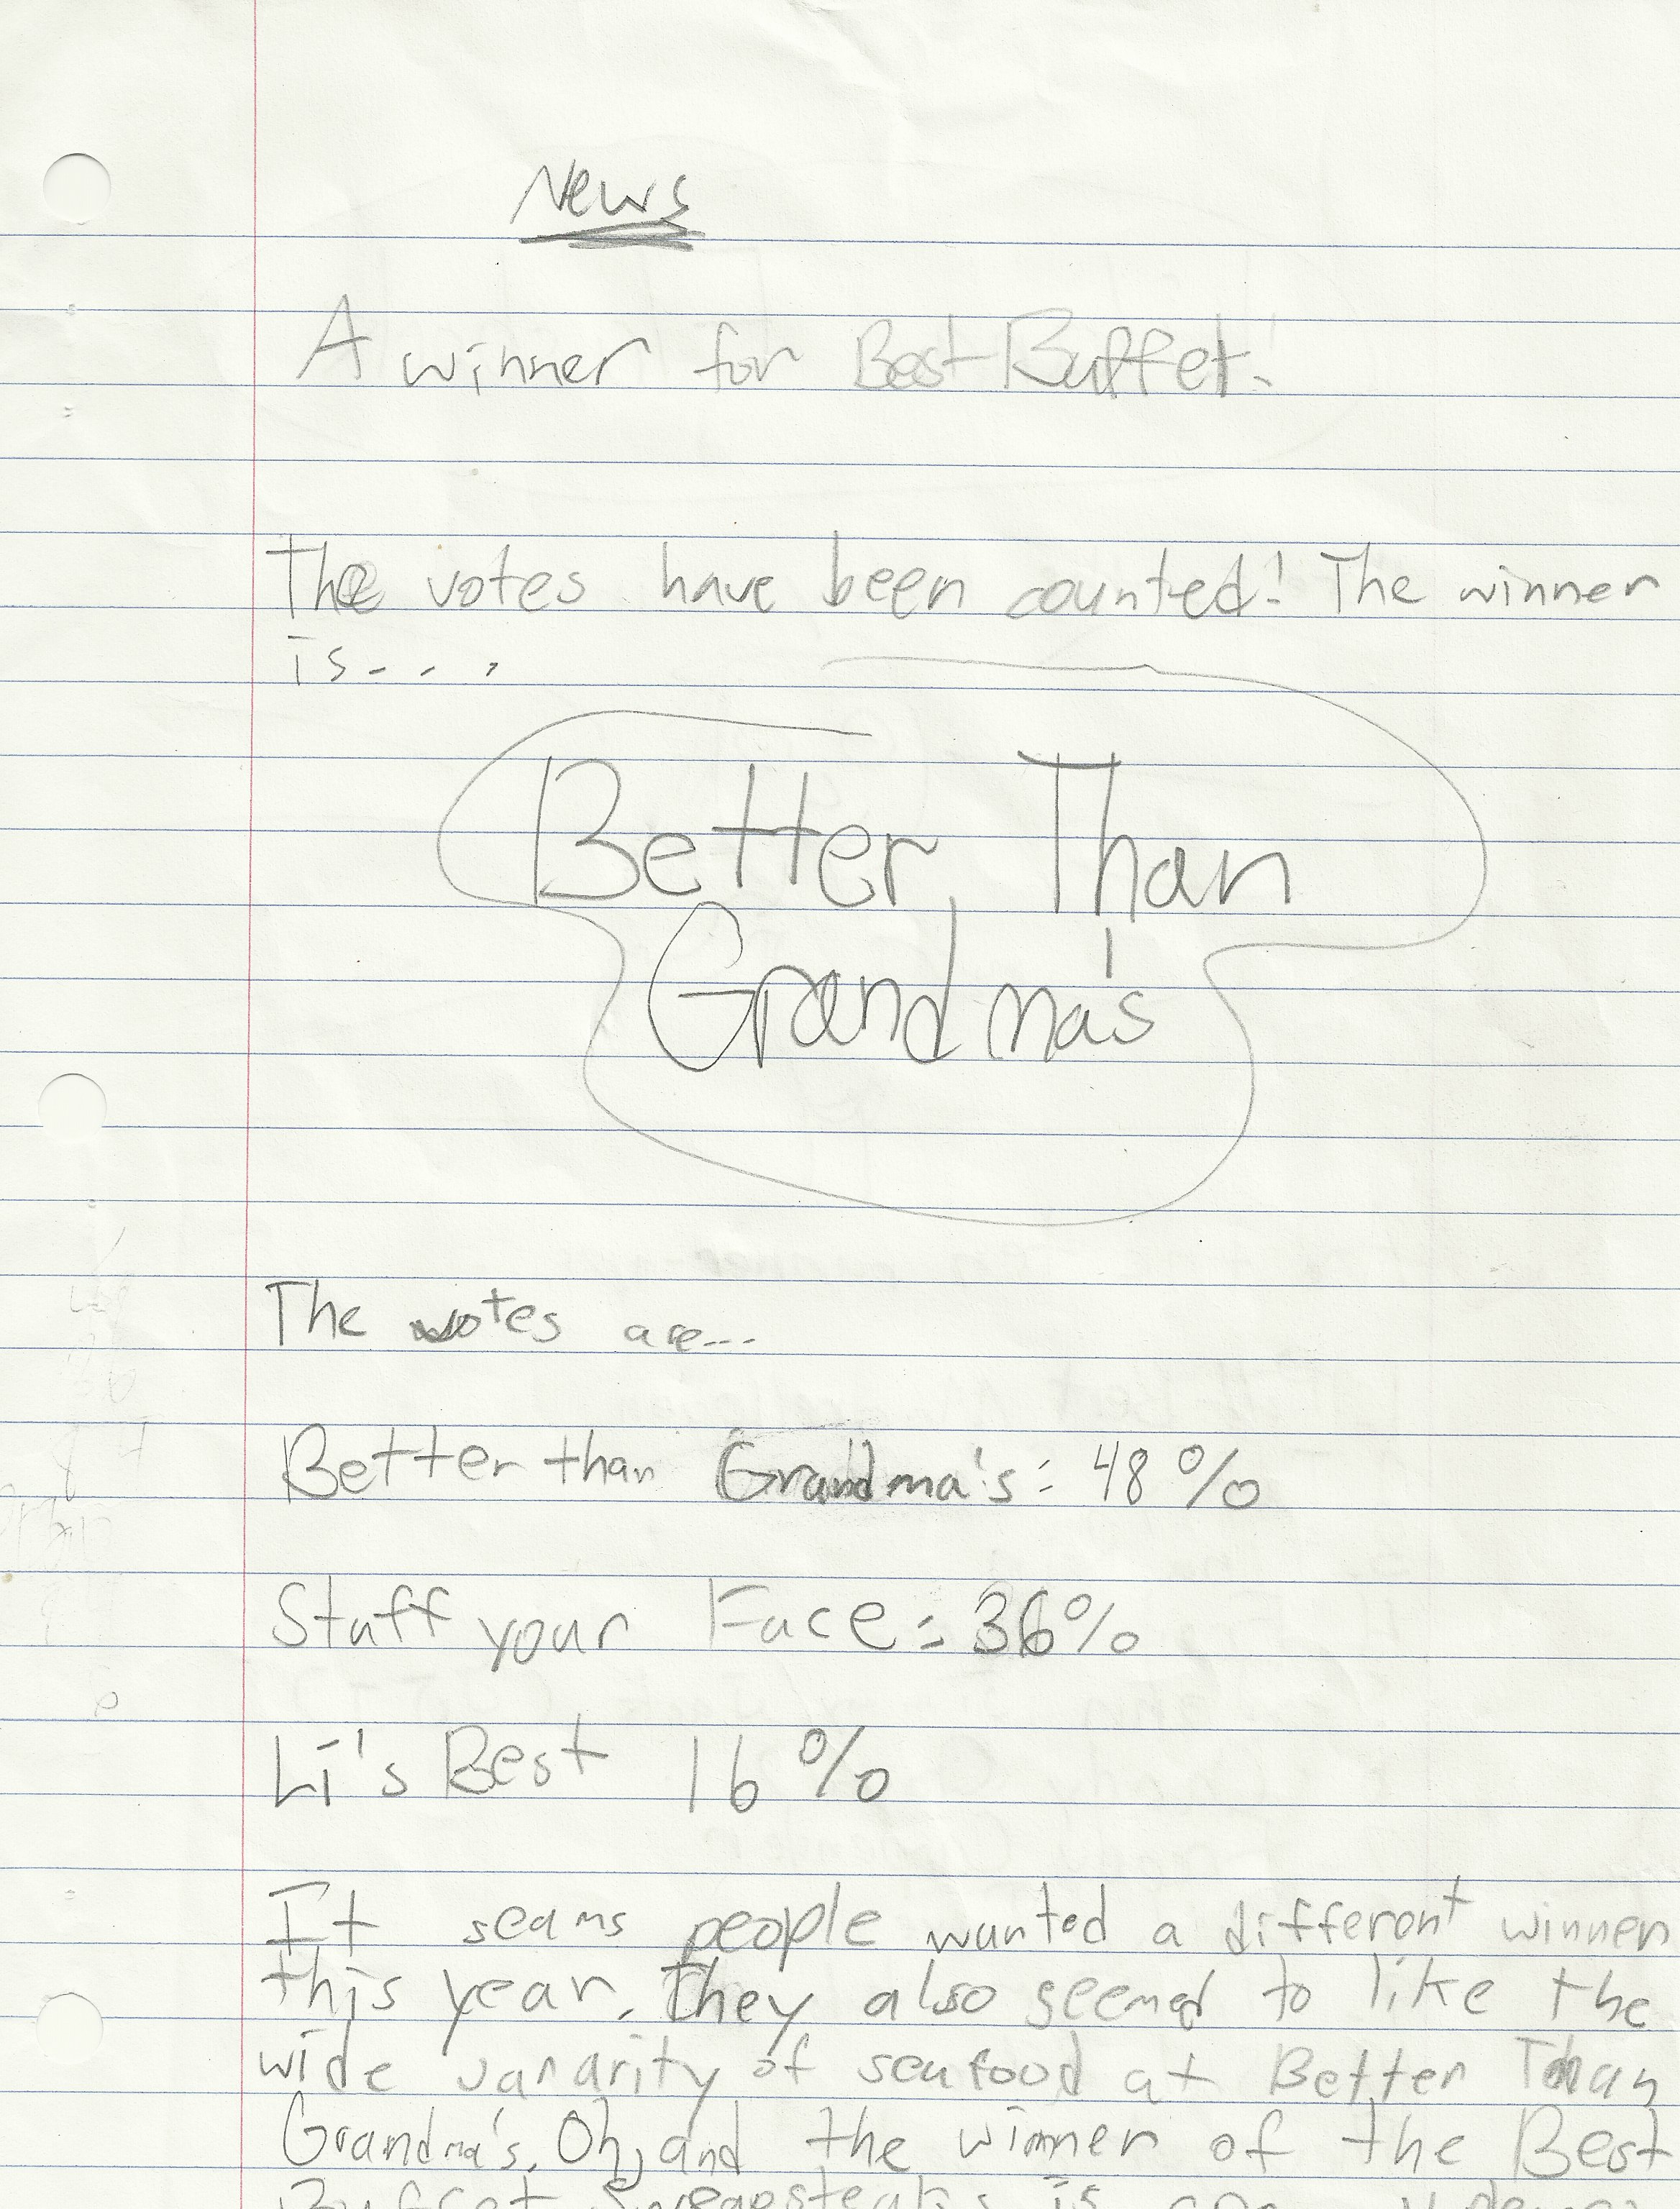 News
A winner for Best Buffet!
The votes have been counted! The winner
is....
Better Than
Grandma's
The votes are...
Better than Grandma's: 48%
Stuff your Face: 36%
Li's Best 16%
It seams people wanted a different winner
this year. They also seemed to like the
wide vararity of seafood at Better Than
Grandma's. Oh, and the winner of the Best
Buffet Sweepsteaks is